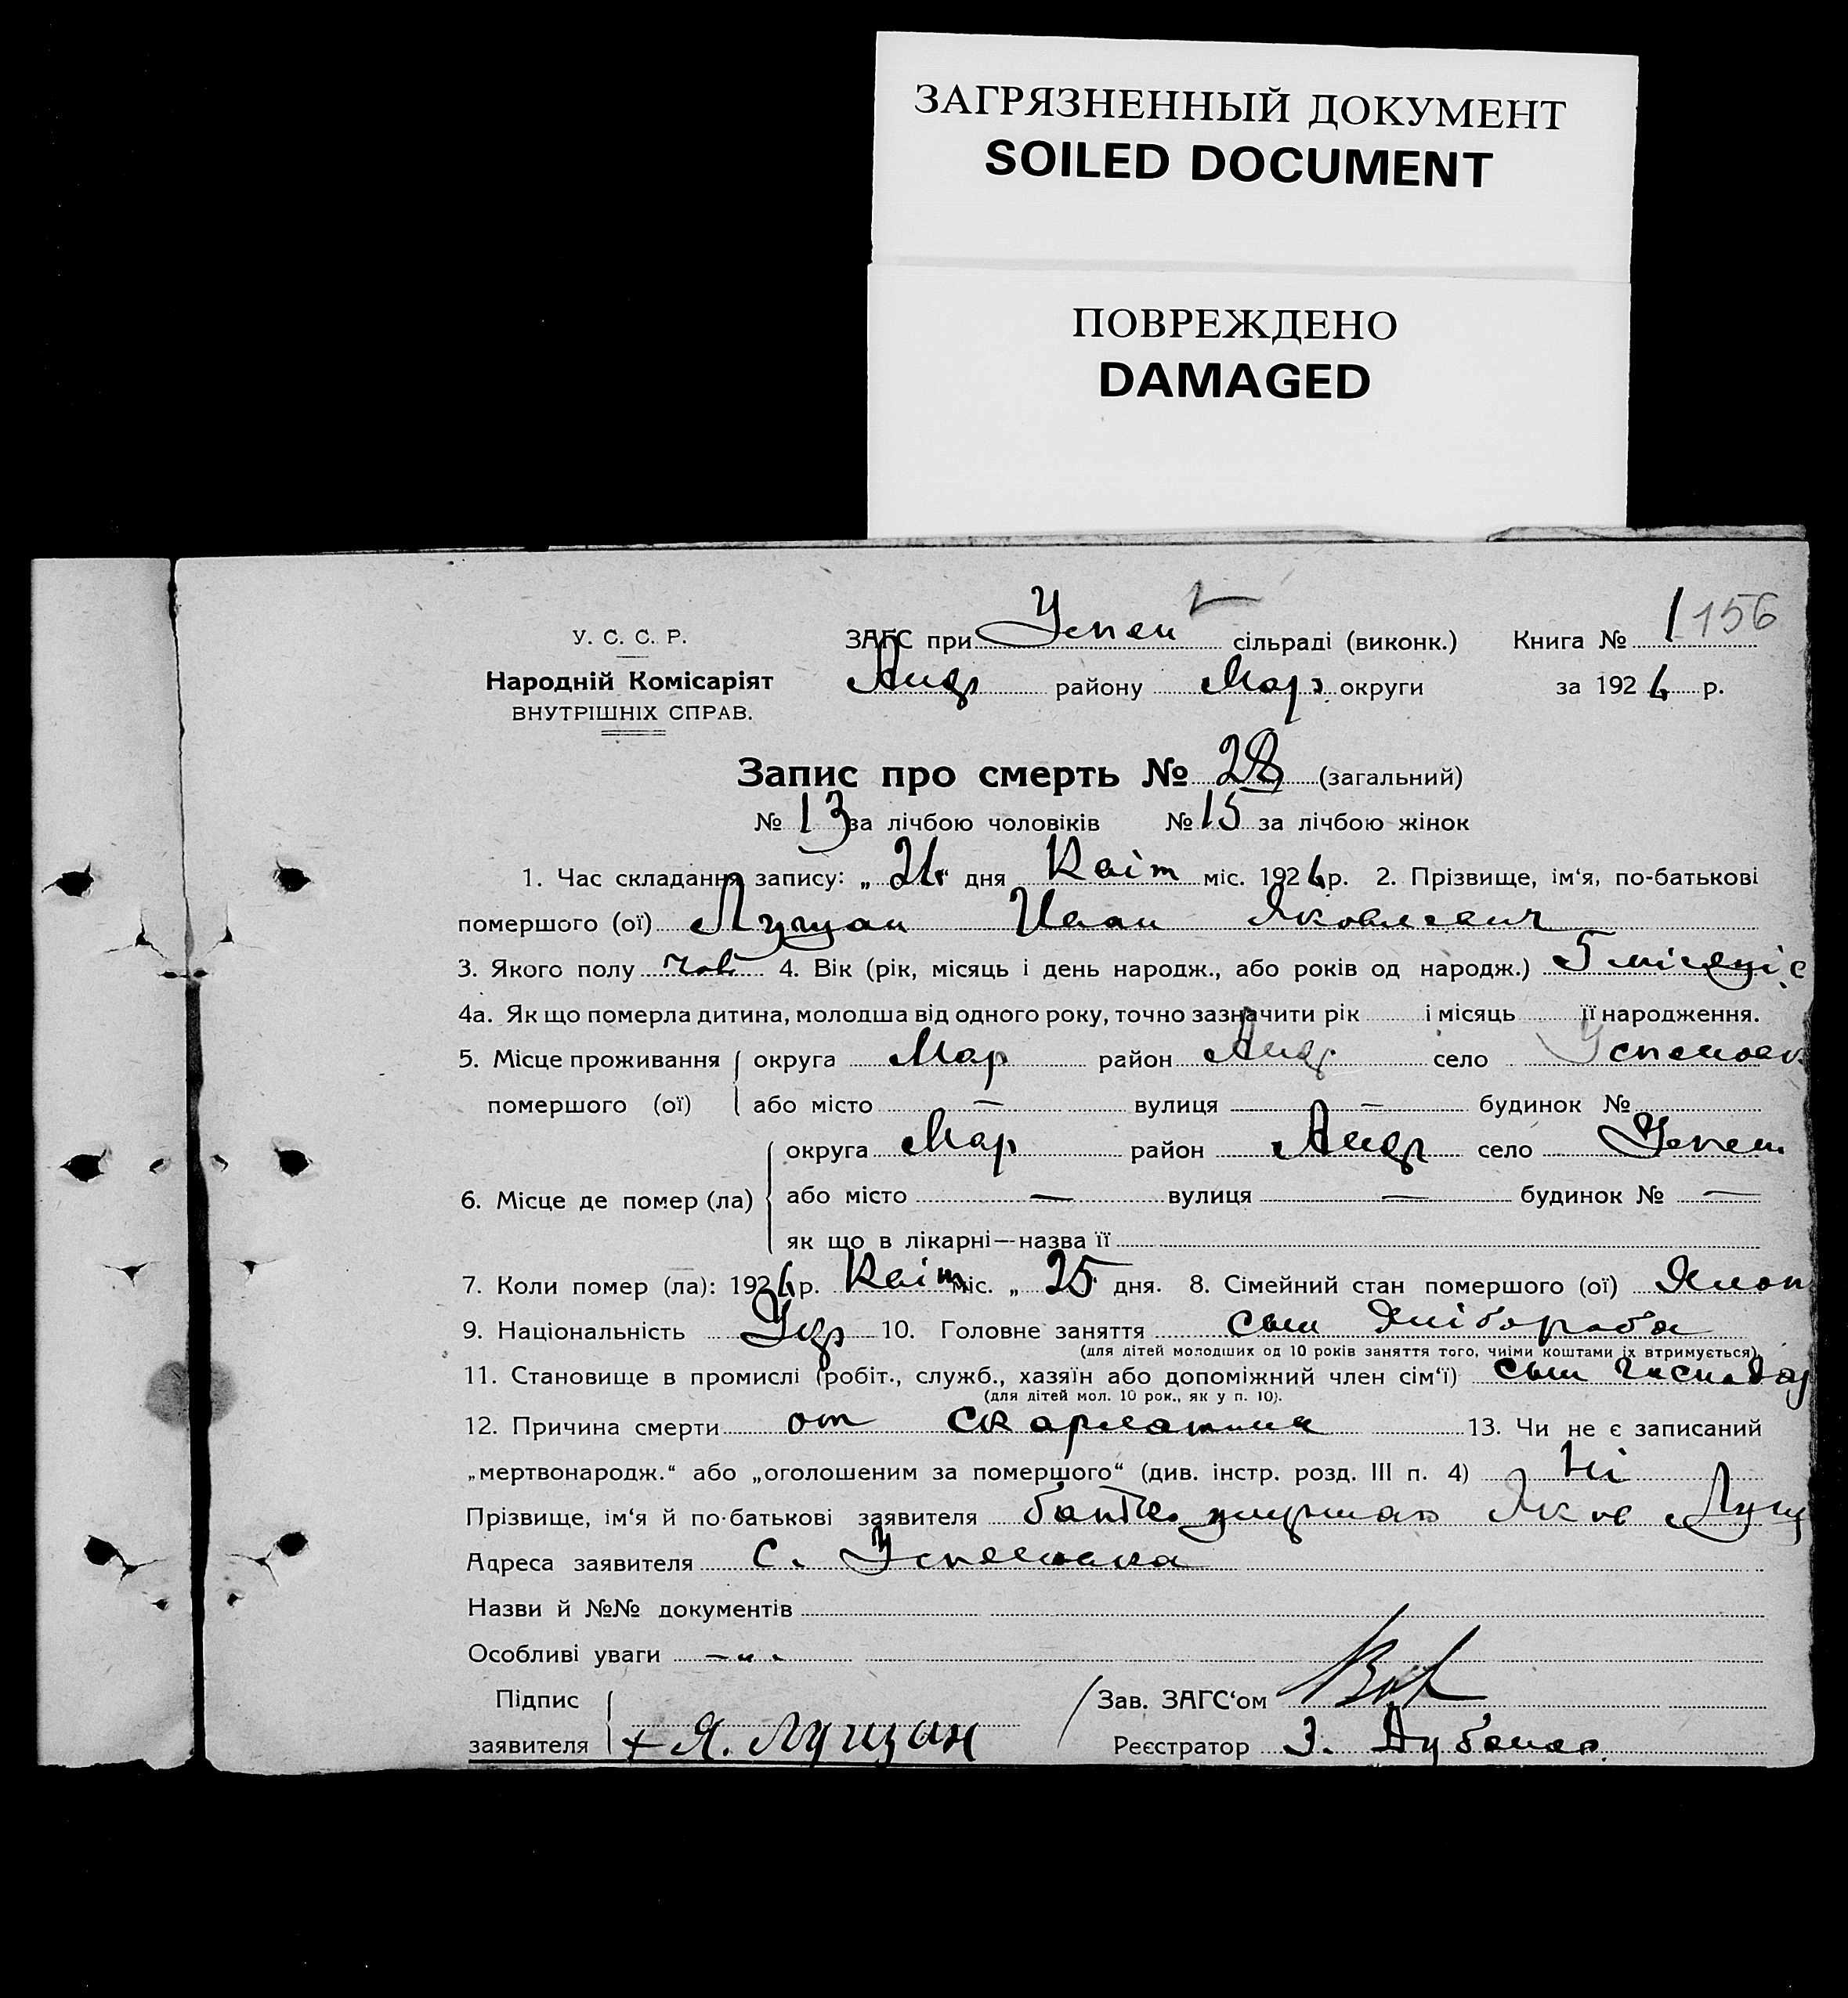 ЗАГРЯЗНЕННЫЙ ДОКУМЕНТ
SOILED DOCUMENT
ПОВРЕЖДЕНО
DAMAGED
У. С. С. Р.
Народній Комісаріят
ВНУТРІШНІХ СПРАВ.
ЗАГС при Успен сільраді (виконк.) Книга № 1 156
Андр району Мар. округи за 1926 р.
Запис про смерть № 28 (загальний)
№ 13 за лічбою чоловіків № 15 за лічбою жінок
1. Час складання запису: „ 26 “ дня Квіт міс. 1926 р. 2. Прізвище, ім‘я, по-батькові
помершого (ої) Лущан Иван Яковлевич
3. Якого полу чов 4. Вік (рік, місяць і день народж., або років од народж.) 5 місяців
4а. Як що померла дитина, молодша від одного року, точно зазначити рік і місяць її народження.
5. Місце проживання округа Мар район Андр. село Успеновк
помершого (ої) або місто — вулиця — будинок №
округа Мар район Андр село Успен
6. Місце де помер (ла) або місто — вулиця — будинок № —
як що в лікарні—назва її
7. Коли помер (ла): 1926 р. Квіт міс. „ 25 дня. 8. Сімейний стан помершого (ої)
9. Національність Укр 10. Головне заняття сын хлібороба
(для дітей молодших од 10 років заняття того, чиїми коштами їх втримується)
11. Становище в промислі (робіт., служб., хазяїн або допоміжний член сім‘ї) сын господар
(для дітей мол. 10 рок., як у п. 10).
12. Причина смерти от скарлатины 13. Чи не є записаний
„мертвонародж.“ або „оголошеним за померщого“ (див. інстр. розд. III п. 4) Ні
Прізвище, ім‘я й по-батькові заявителя батько умершаго Яков Лущ
Адреса заявителя с. Успеновка
Назви й №№ документів
Особливі уваги —„.
Підпис
заявителя + Я. Лущан
Зав. ЗАГС‘ом
Реєстратор З. Дубонос.